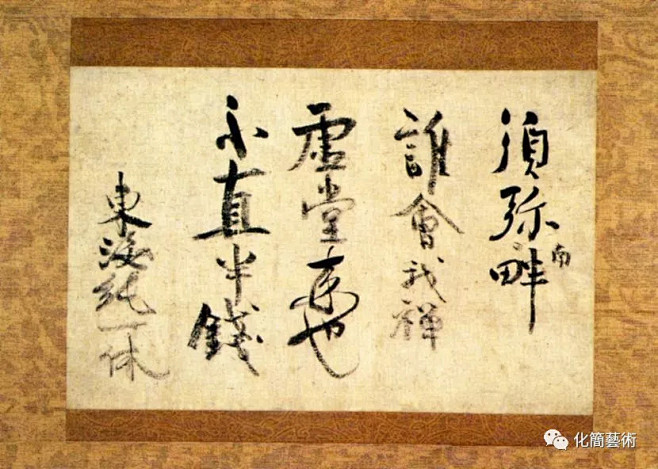 須弥南畔
誰會我禅
虚堂來也
不直半錢
東海純一休
化簡藝術